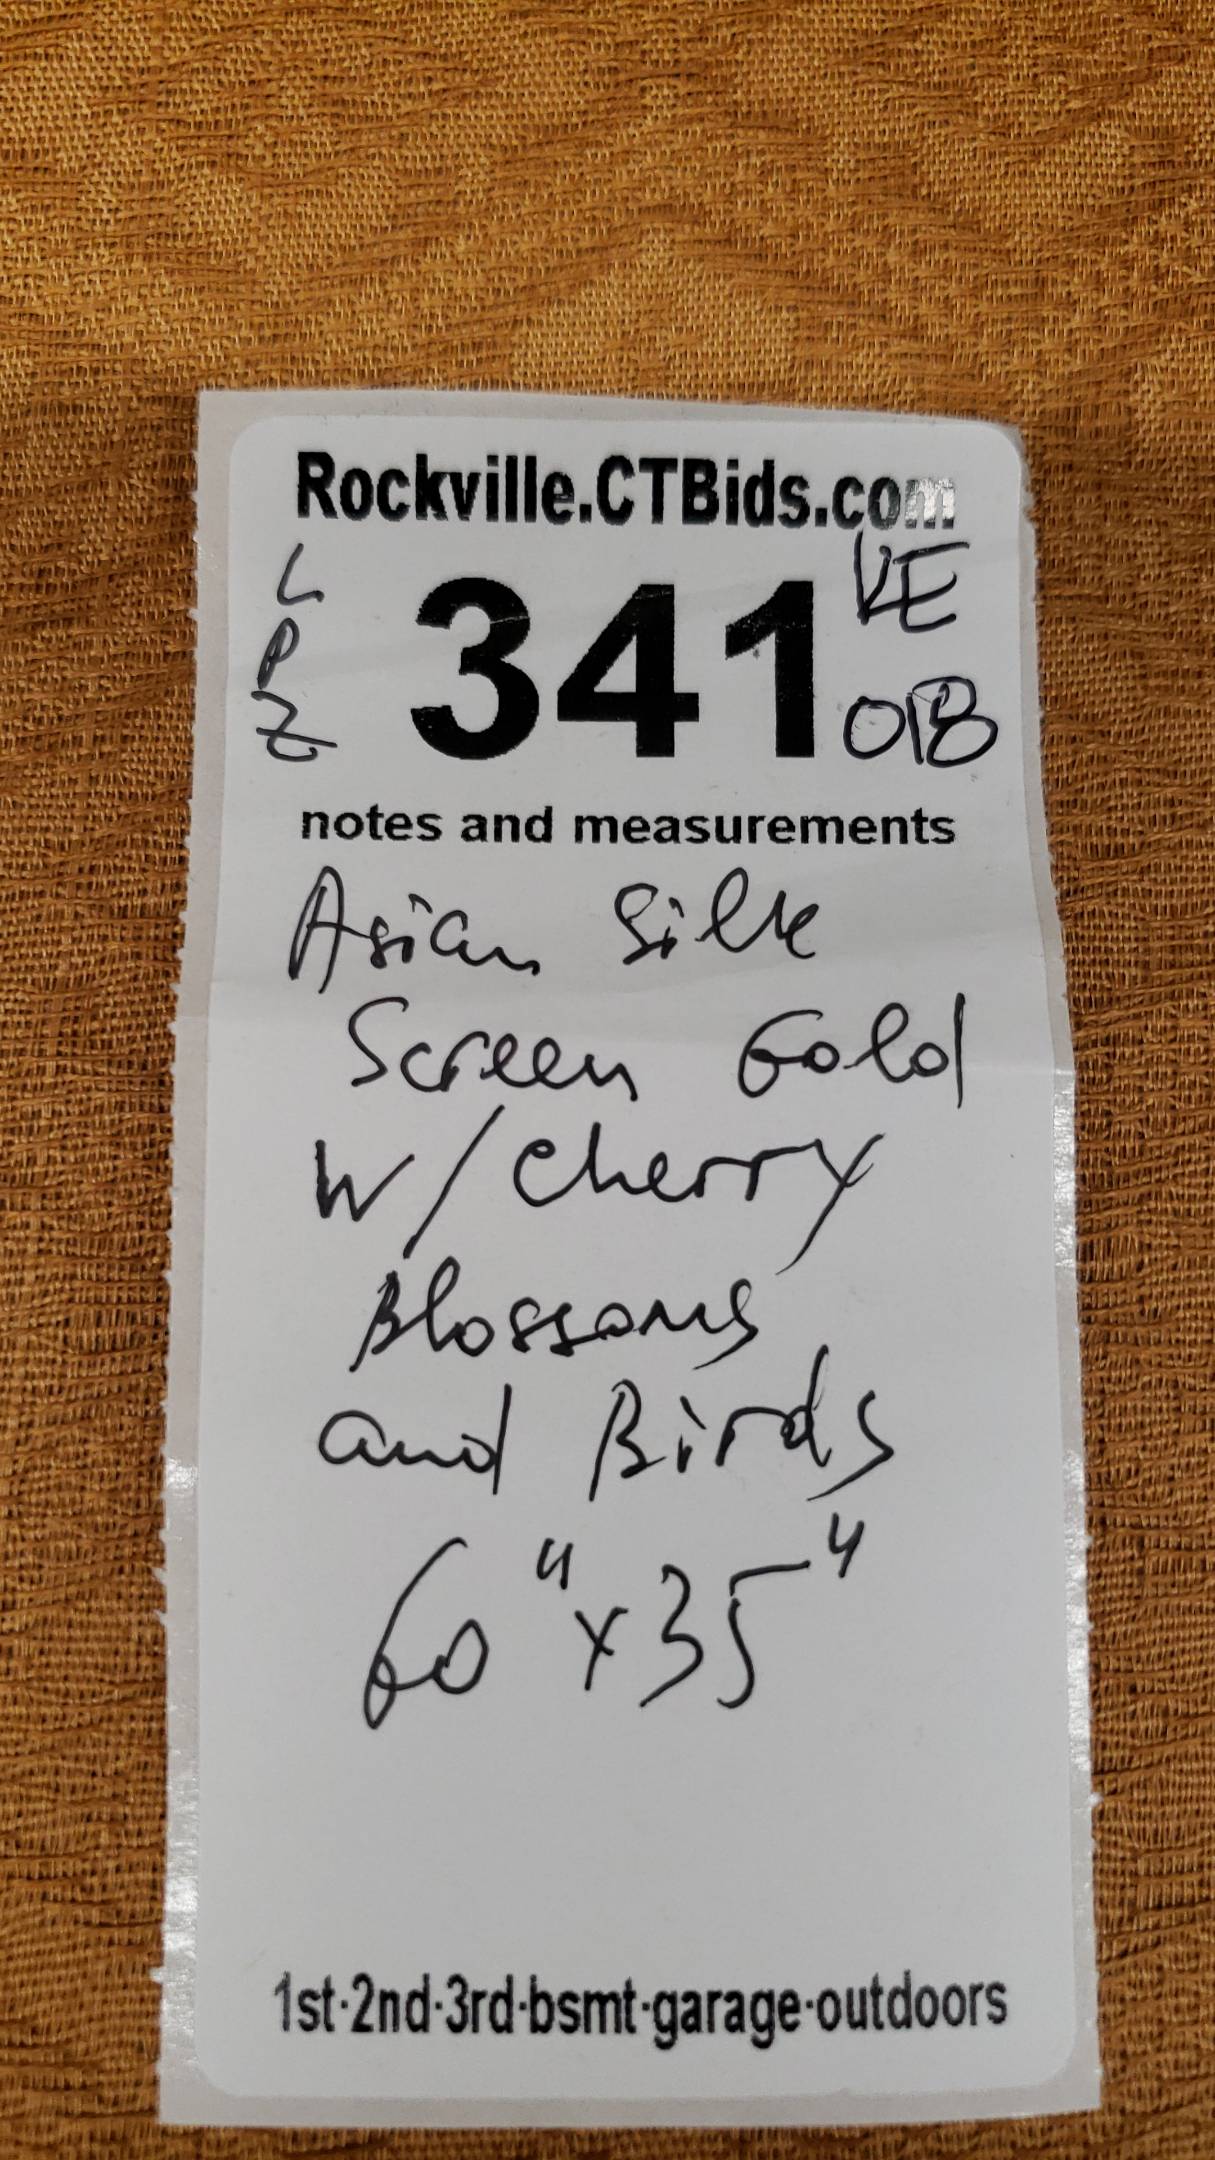 Rockville.CTBids.com
L
P
Z
341
VE
01B
notes and measurements
Asian Silk
Screen Gold
W/Cherry
Blossoms
and Birds
60"x35"
1st·2nd·3rd·bsmt·garage·outdoors